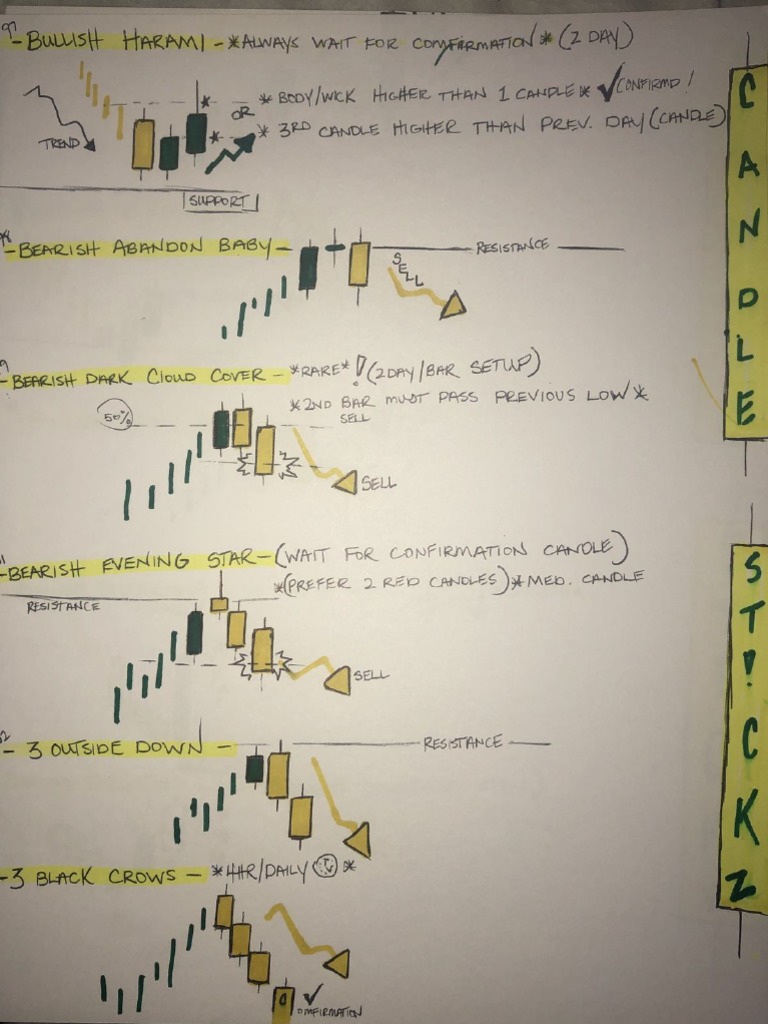 - BULLISH HARAMI - *ALWAYS WAIT FOR COMFIRMATION* (2 DAY)
* BODY/WICK HIGHER THAN 1 CANDLE* ✓CONFIRMD!
OR
* 3RD CANDLE HIGHER THAN PREV. DAY (CANDLE)
TREND
SUPPORT
- BEARISH ABANDON BABY -
RESISTANCE
SELL
- BEARISH DARK CLOUD COVER - *RARE*! (2DAY/BAR SETUP)
*2ND BAR MUST PASS PREVIOUS LOW*
50%
SELL
SELL
- BEARISH EVENING STAR - (WAIT FOR CONFIRMATION CANDLE)
*(PREFER 2 RED CANDLES)* MED. CANDLE
RESISTANCE
SELL
- 3 OUTSIDE DOWN -
RESISTANCE
- 3 BLACK CROWS - *4HR/DAILY *
✓
OMFIRMATION
CANDLE
ST!CKZ